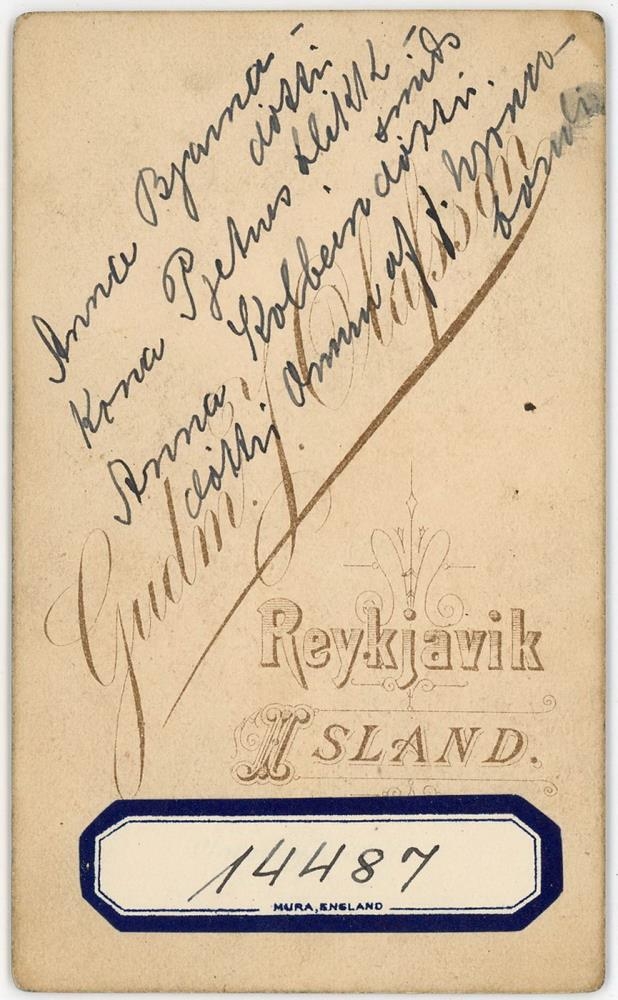 Anna Bjarna-
dóttir
Kona Pjeturs
smiðs
Anna, Kolbeinsdóttir.
dóttir Önnu af f. hjóna-
bandi
Gudm. J. Olafsson
Reykjavik
ISLAND.
14487
MURA, ENGLAND